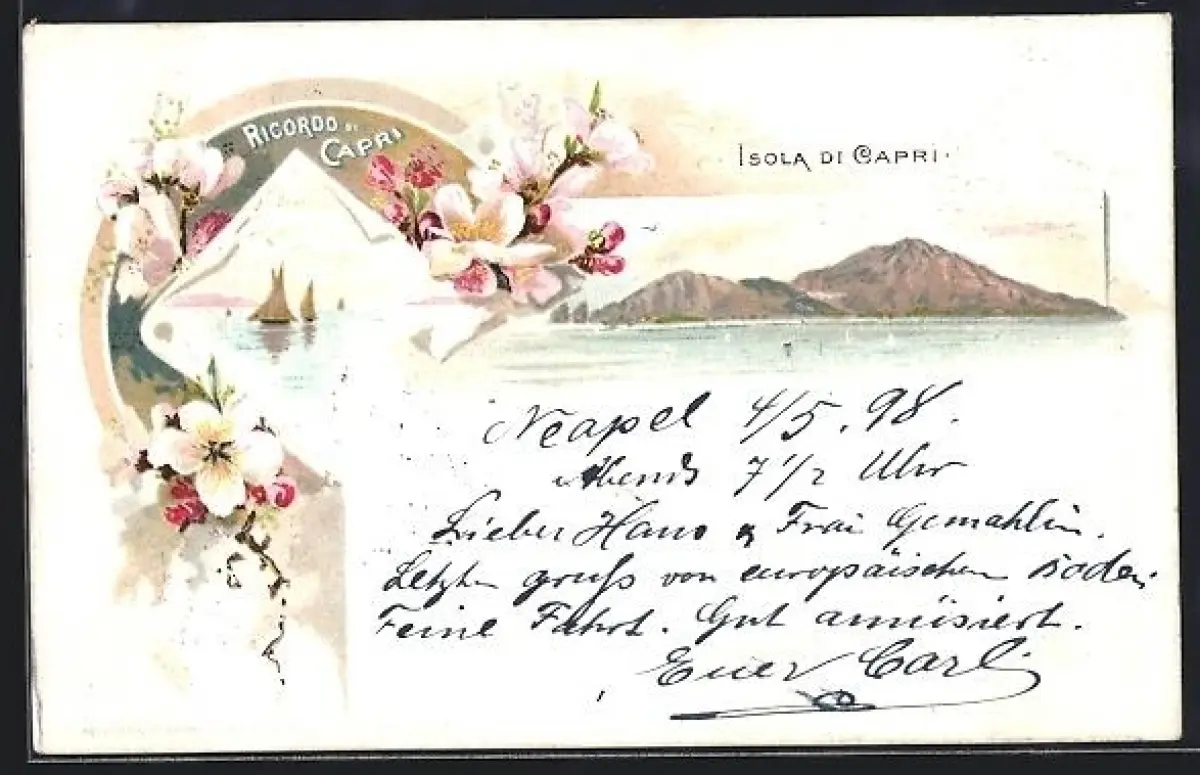 RICORDO DI
CAPRI
ISOLA DI CAPRI
Neapel 4/5. 98.
Abends 7 1/2 Uhr
Lieber Hans & Frau Gemahlin.
Letzten gruß von europäischen Boden.
Feine Fahrt. Gut amüsiert.
Euer Carl